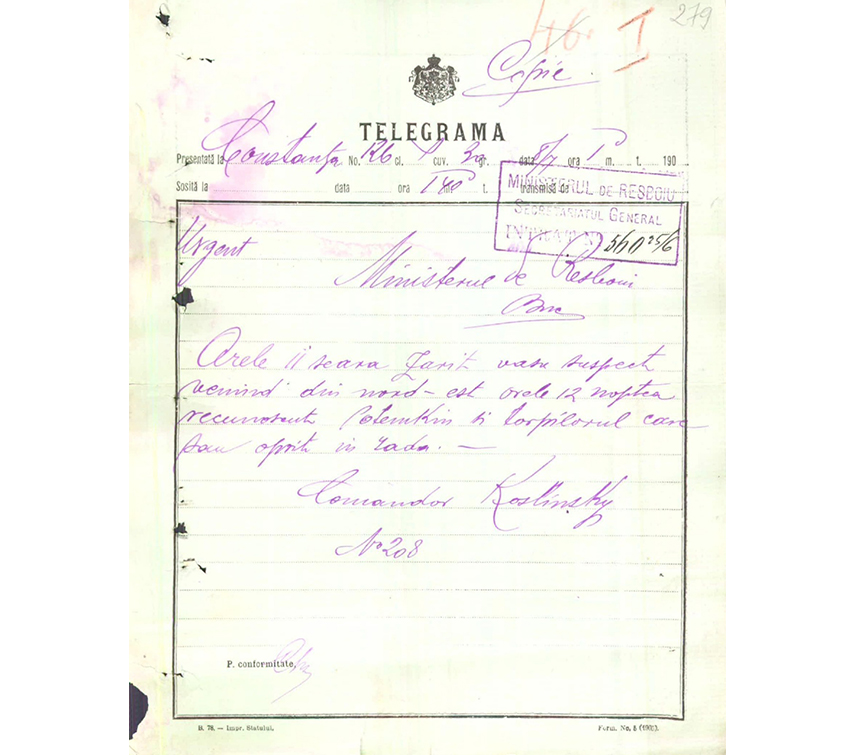 46 I 279
Copie
TELEGRAMA
Presentată la Constanța No. 126 cl. cuv. 30 gr. data 8/7 ora I m. t. 190
Sosită la data ora 1 40 t. transmisă de
MINISTERUL DE RESBOIU
SECRETARIATUL GENERAL
INTRARE No 5602 25/6
Urgent
Ministerul de Resboiu
Buc
Orele 11 seara zarit vasu suspect
venind din nord-est orele 12 noptea
recunoscut Potemkin si torpilorul care
sau oprit in rada. —
Comandor Koslinsky
No 208
P. conformitate,
B. 78. — Impr. Statului. Form. No. 5 (1902).